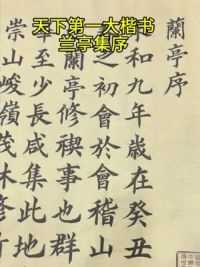 天下第一大楷书
兰亭集序
蘭亭序
和九年歲在癸丑
之初會於會稽山
蘭亭修禊事也群
至少長咸集此地
崇山峻嶺茂林修